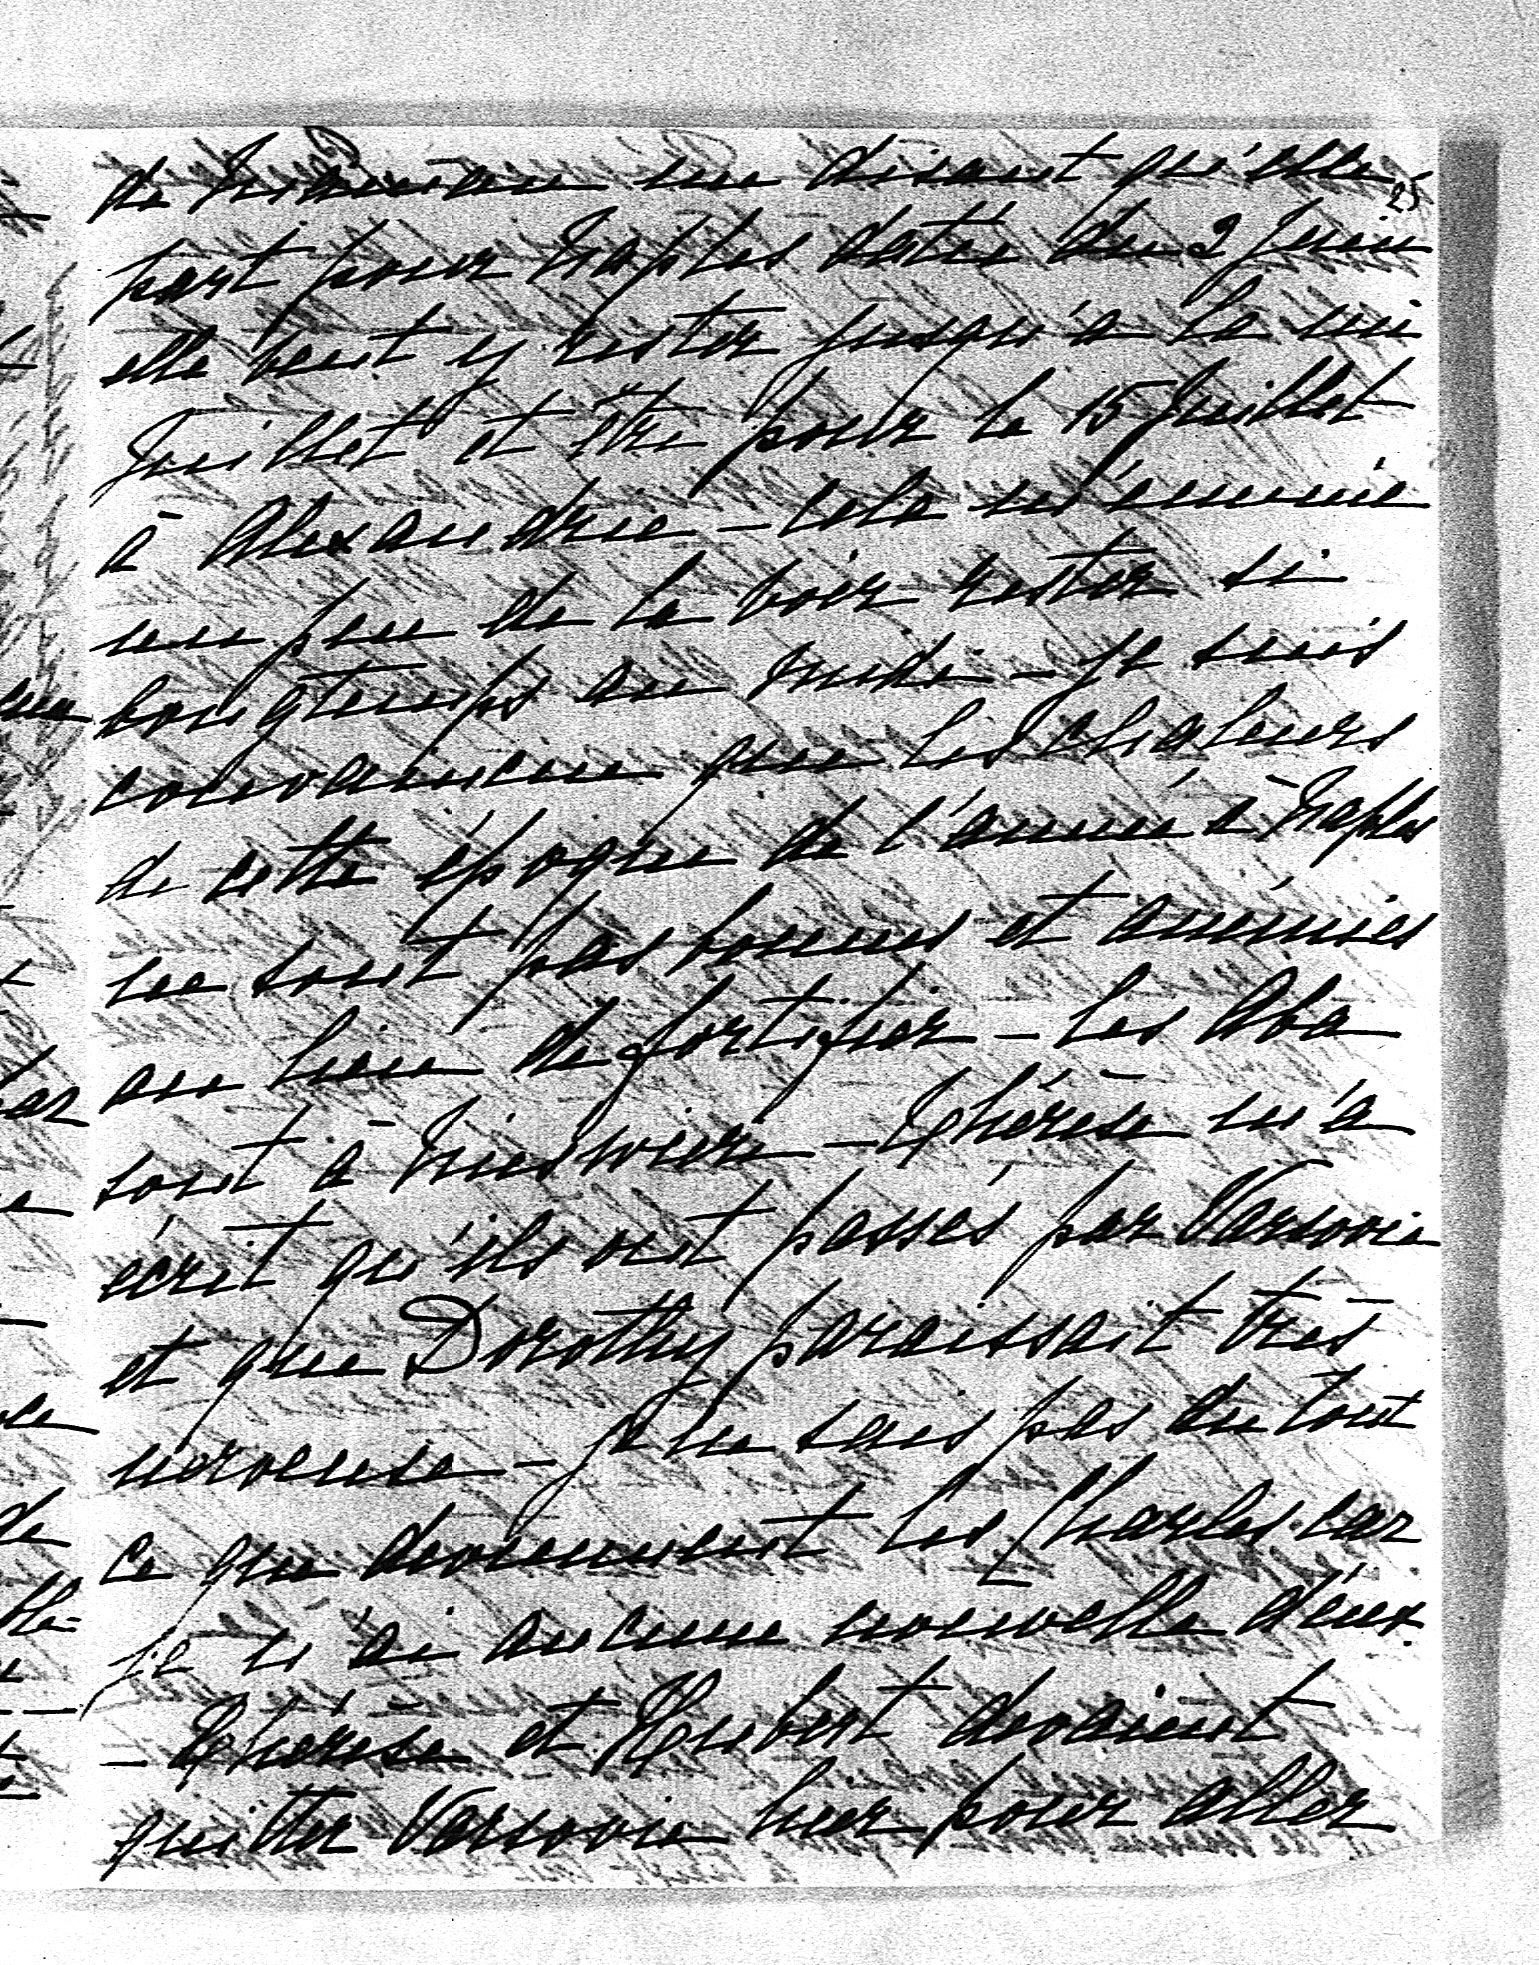 de me disant qu'elle
25
part pour Naples datée du 2 Juin
elle veut y rester jusqu'à la mi
Juillet et être pour le 15 Juillet
à Alexandrie – cela m'ennuie
un peu de la voir rester si
longtemps au midi – je suis
convaincue que les chaleurs
de cette époque de l'année à Naples
ne sont pas bonnes et anémies
au lieu de fortifier – Les Aba
sont à Nieswiere – Thérèse m'a
écrit qu'ils ont passés par Varsovie
et que Dorothy paraissait très
nerveuse – Je ne sais pas du tout
ce que deviennent les Charles car
je n'ai aucune nouvelle d'eux.
– Thérèse et Hubert devaient
quitter Varsovie hier pour aller